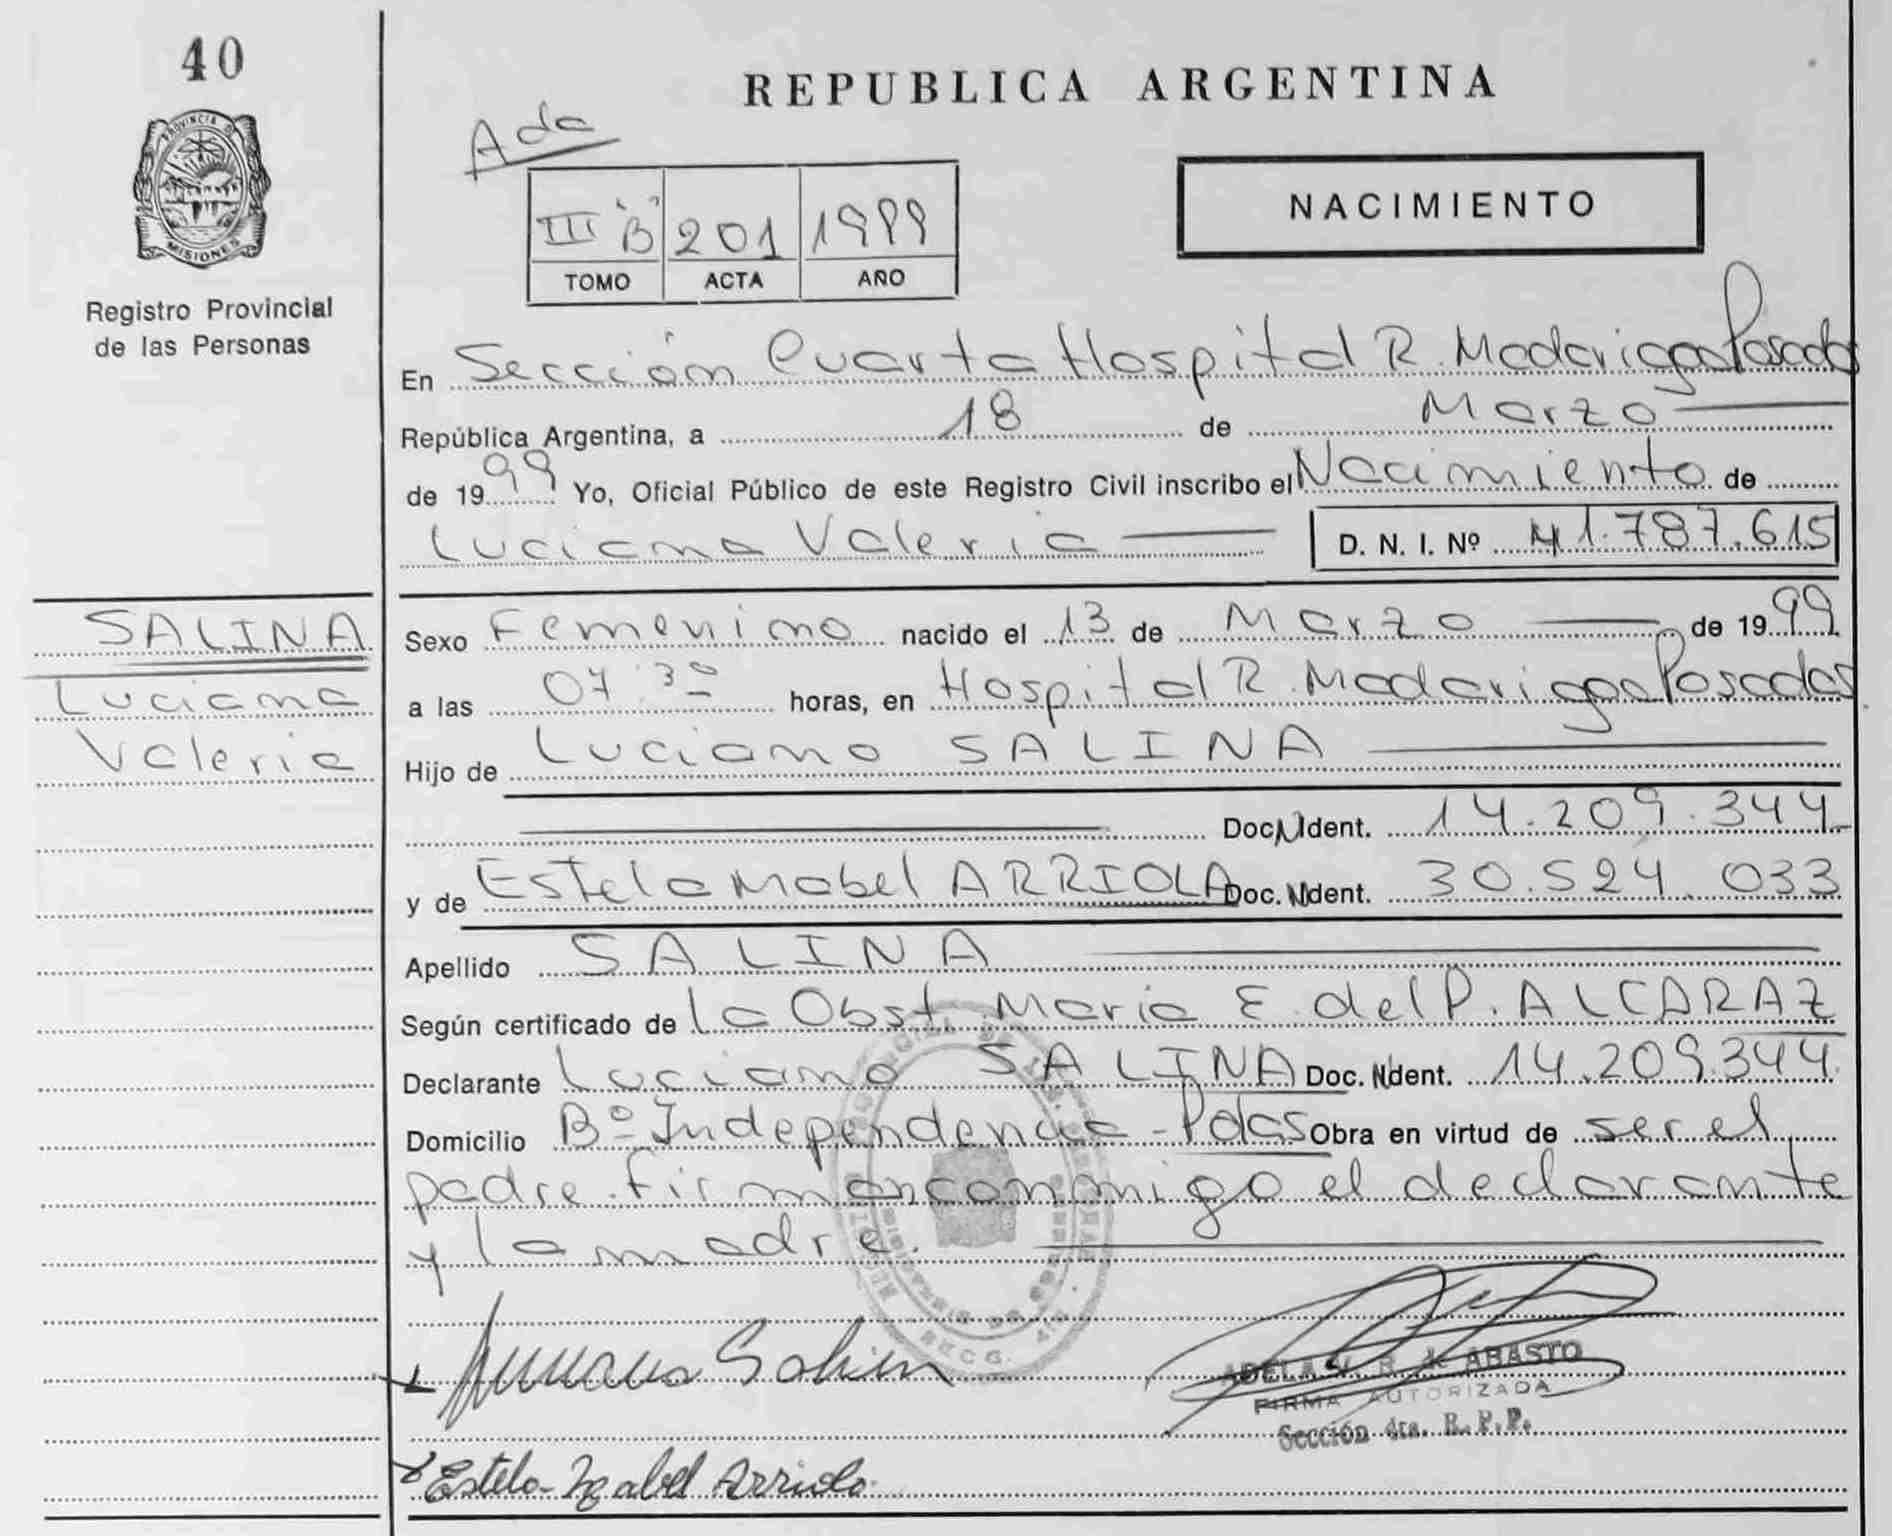 40
PROVINCIA DE
MISIONES
Registro Provincial
de las Personas
REPUBLICA ARGENTINA
Ada
III "B" 201 1999
TOMO ACTA AÑO
NACIMIENTO
En Sección Cuarta Hospital R. Madariaga Posadas
República Argentina, a 18 de Marzo
de 1999 Yo, Oficial Público de este Registro Civil inscribo el Nacimiento de
Luciana Valeria D. N. I. Nº 41.787.615
SALINA
Luciana
Valeria
Sexo Femenino nacido el 13 de Marzo de 1999
a las 07:30 horas, en Hospital R. Madariaga Posadas
Hijo de Luciano SALINA
Doc. N Ident. 14.209.344
y de Estela Mabel ARRIOLA Doc. N Ident. 30.524.033
Apellido SALINA
Según certificado de la Obst. Maria E. del P. ALCARAZ
Declarante Luciano SALINA Doc. N Ident. 14.209.344
Domicilio Bº Independencia - Pdas Obra en virtud de ser el
padre. Firman conmigo el declarante
y la madre.
ADELA R. de ABASTO
FIRMA AUTORIZADA
Sección 4ta. R. P. P.
Estela Arriola